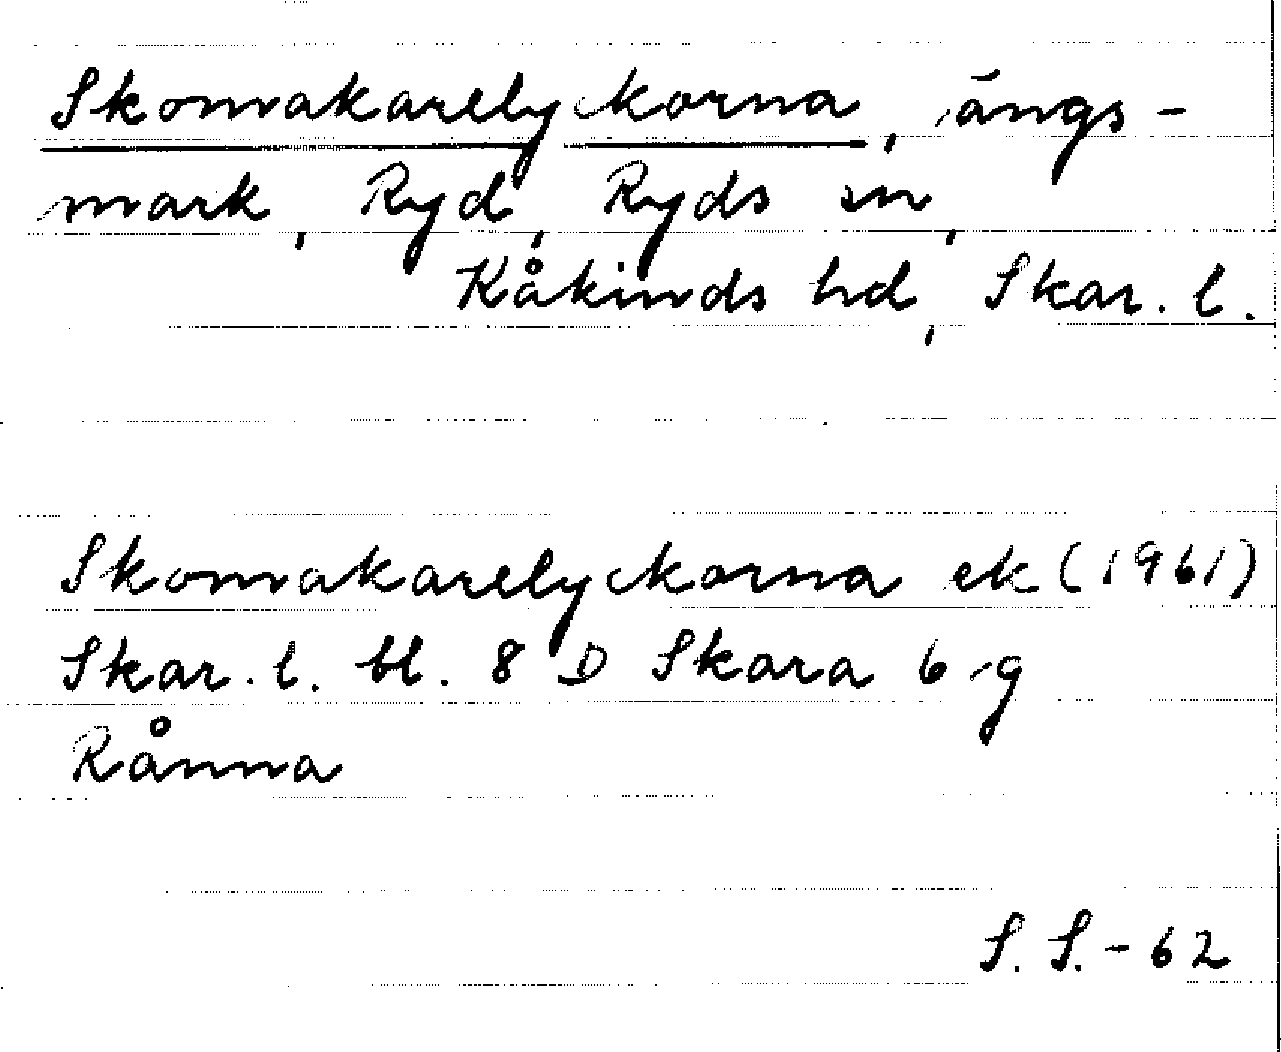 Skomakarelyckorna, ängs-
mark, Ryd, Ryds sn,
Kåkinds hd, Skar. l.
Skomakarelyckorna ek (1961)
Skar. l. bl. 8 D Skara 6 g
Rånna
S. S. - 62